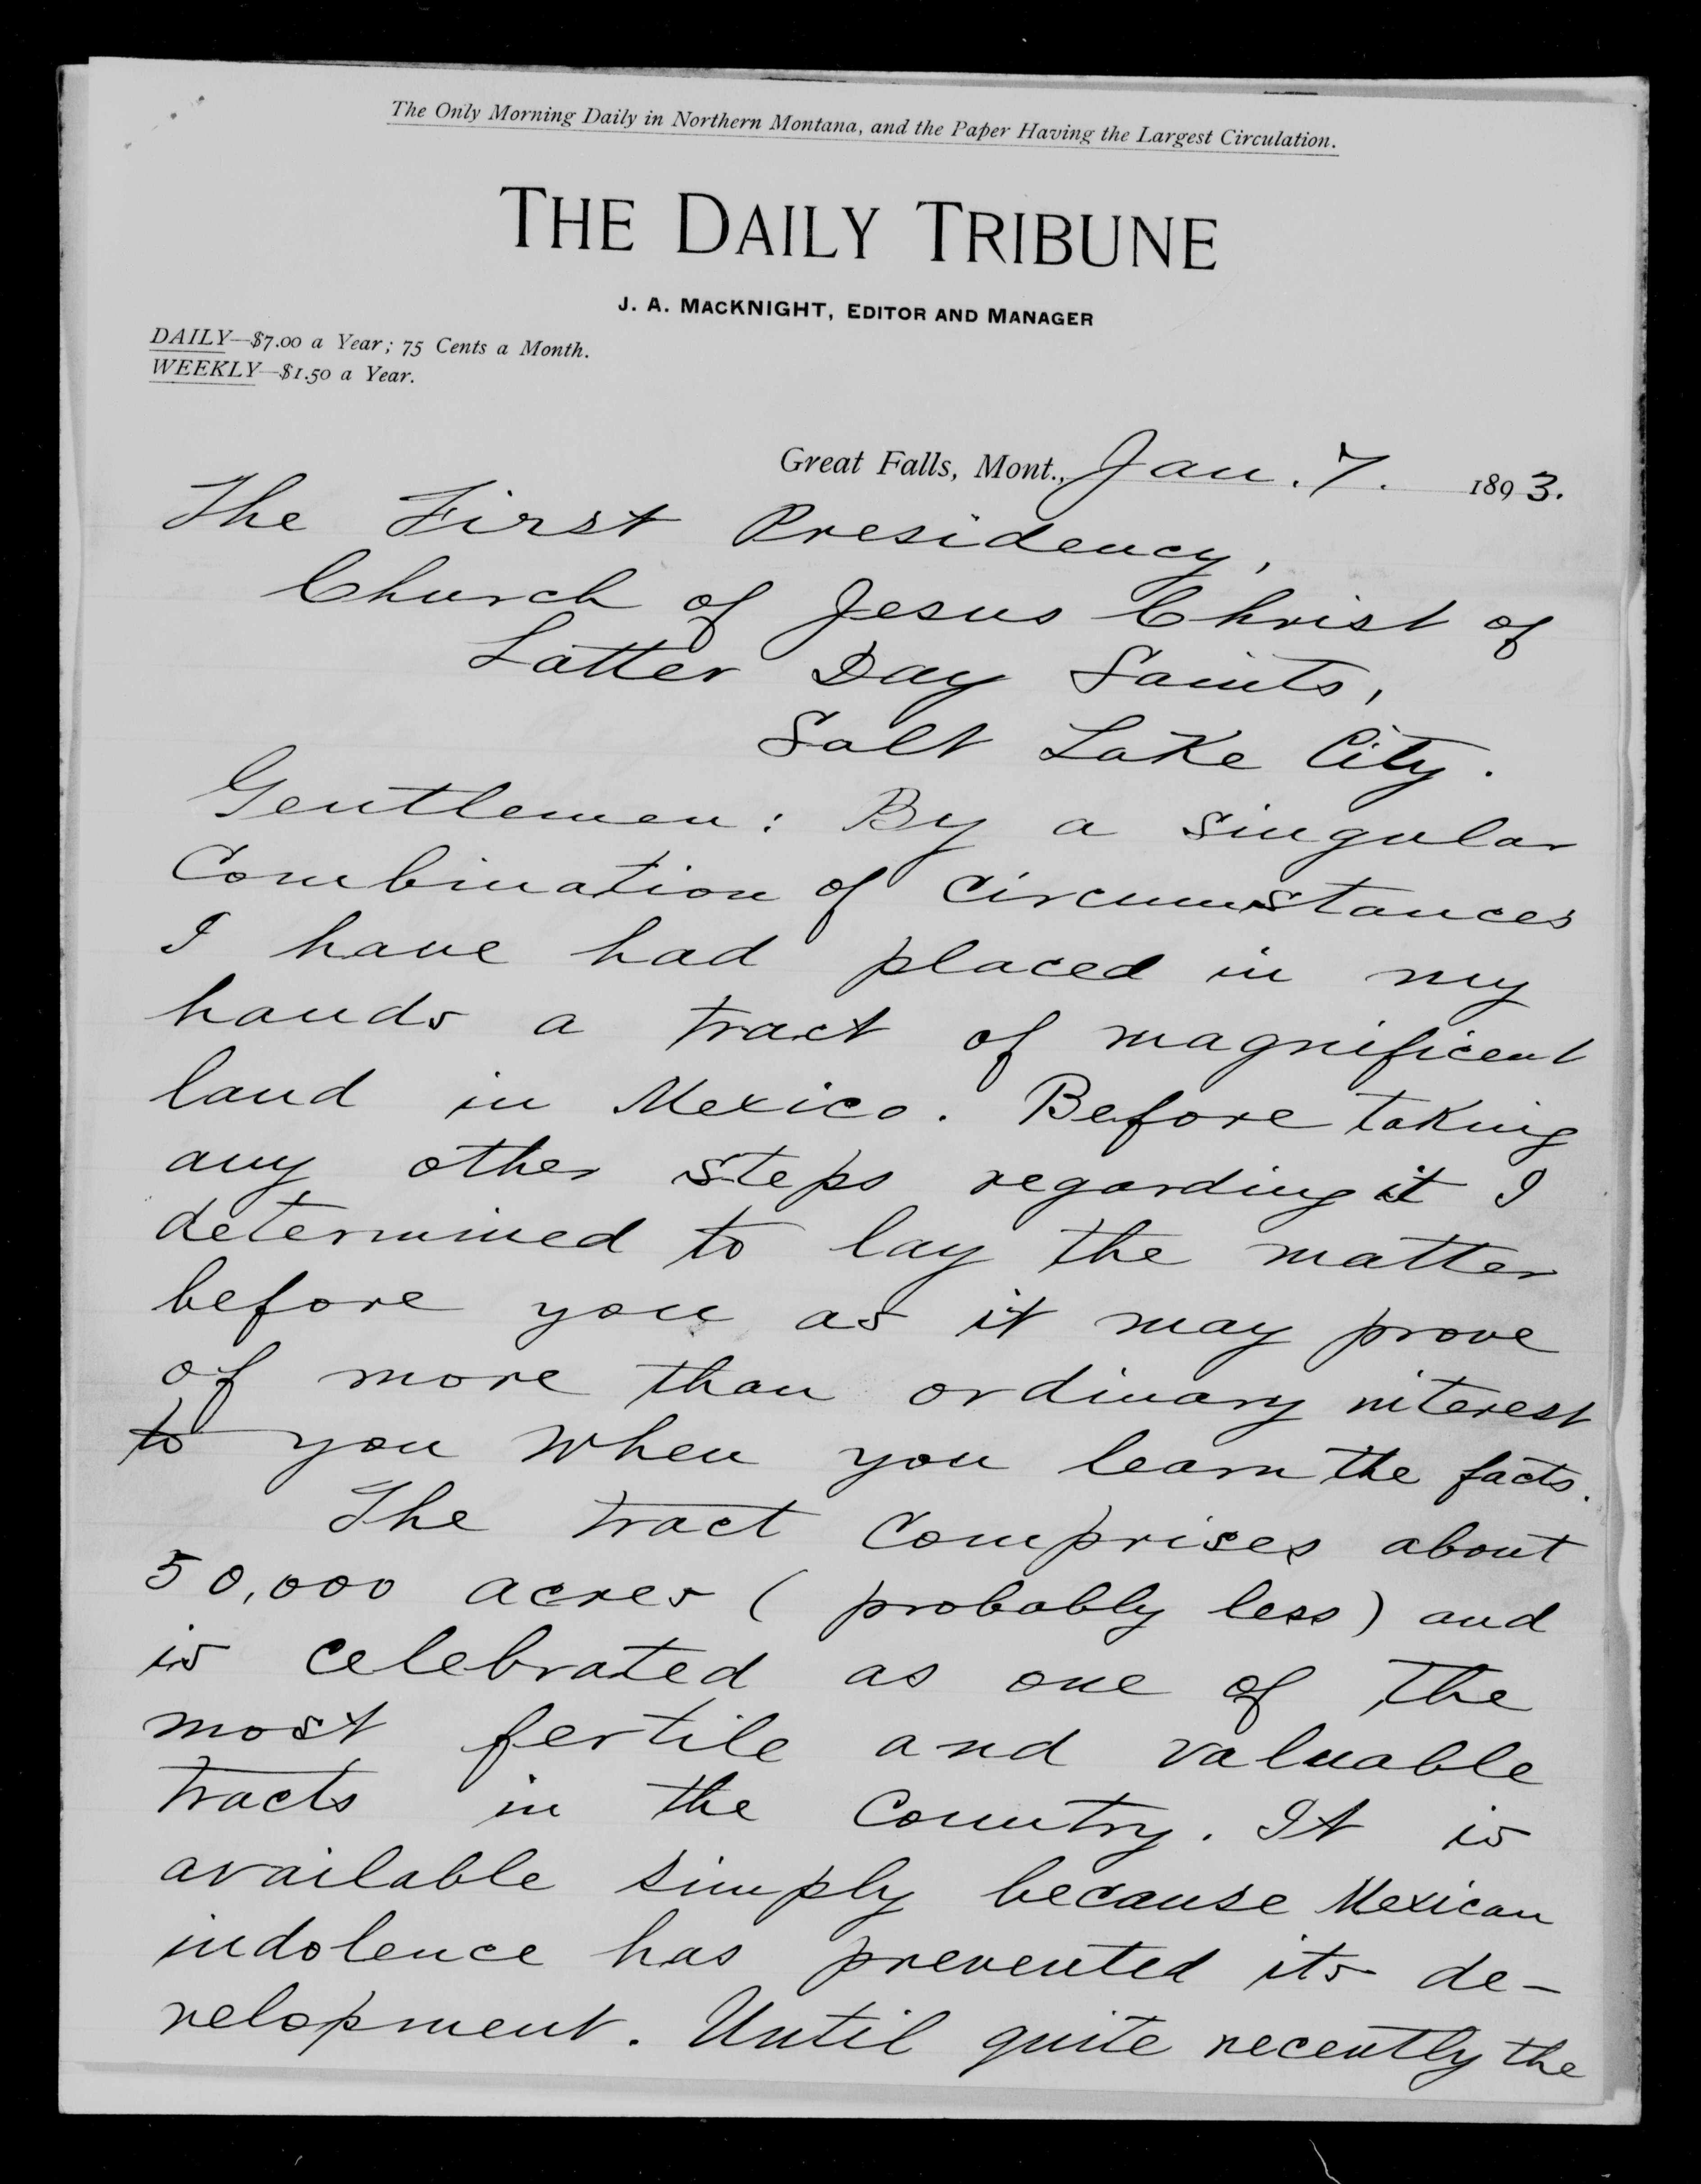 The Only Morning Daily in Northern Montana, and the Paper Having the Largest Circulation.
THE DAILY TRIBUNE
J. A. MACKNIGHT, EDITOR AND MANAGER
DAILY—$7.00 a Year; 75 Cents a Month.
WEEKLY—$1.50 a Year.
Great Falls, Mont., Jan. 7. 1893.
The First Presidency,
Church of Jesus Christ of
Latter Day Saints,
Salt Lake City.
Gentlemen: By a singular
Combination of circumstances
I have had placed in my
hands a tract of magnificent
land in Mexico. Before taking
any other steps regarding it I
determined to lay the matter
before you as it may prove
of more than ordinary interest
to you when you learn the facts.
The tract comprises about
50,000 acres (probably less) and
is celebrated as one of the
most fertile and valuable
tracts in the Country. It is
available simply because Mexican
indolence has prevented its de-
velopment. Until quite recently the